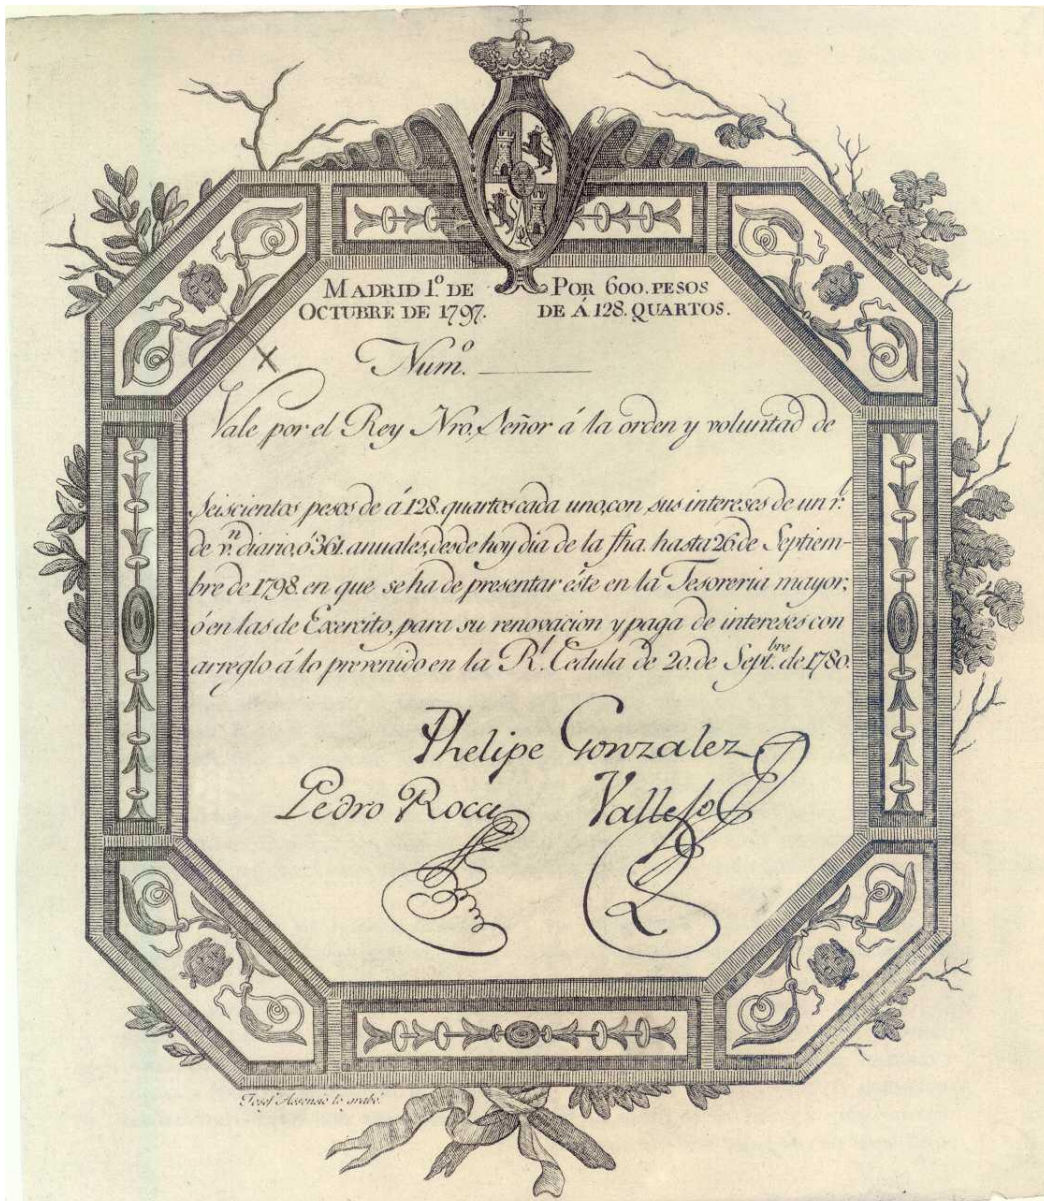 MADRID 1.º DE
OCTUBRE DE 1797.
POR 600. PESOS
DE Á 128. QUARTOS.
Num.º
Vale por el Rey Nro. Señor á la orden y voluntad de
Seiscientos pesos de á 128. quartos cada uno, con sus intereses de un r.l
de v.n diario, ó 361. anuales, desde hoy dia de la fha. hasta 26 de Septiem-
bre de 1798. en que se ha de presentar éste en la Tesoreria mayor,
ó en las de Exercito, para su renovacion y paga de intereses con
arreglo á lo prevenido en la R.l Cedula de 20. de Sept.bre de 1780.
Phelipe Gonzalez
Pedro Roca
Vallejo
Josef Assensio lo grabó.